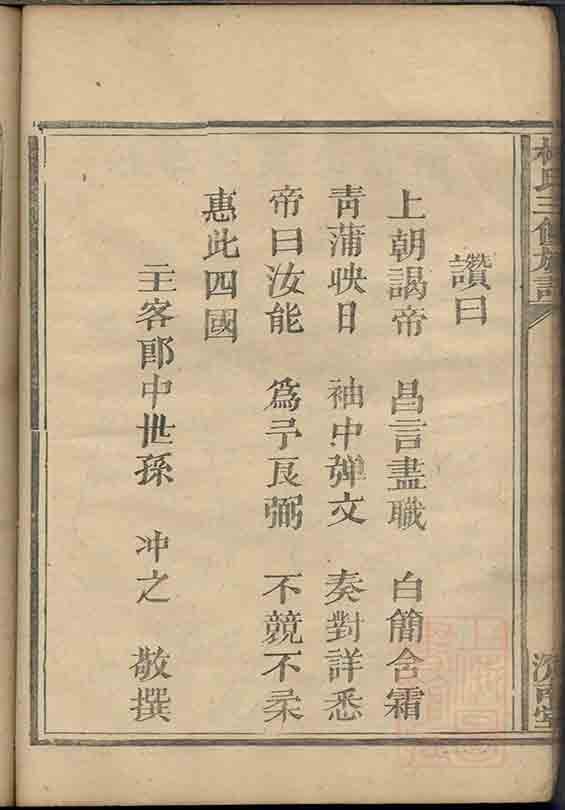 讚曰
上朝謁帝 昌言盡職 白簡含霜
青蒲映日 袖中彈文 奏對詳悉
帝曰汝能 爲予良弼 不競不柔
惠此四國
主客郎中世孫 冲之 敬撰
氏三修族譜
堂